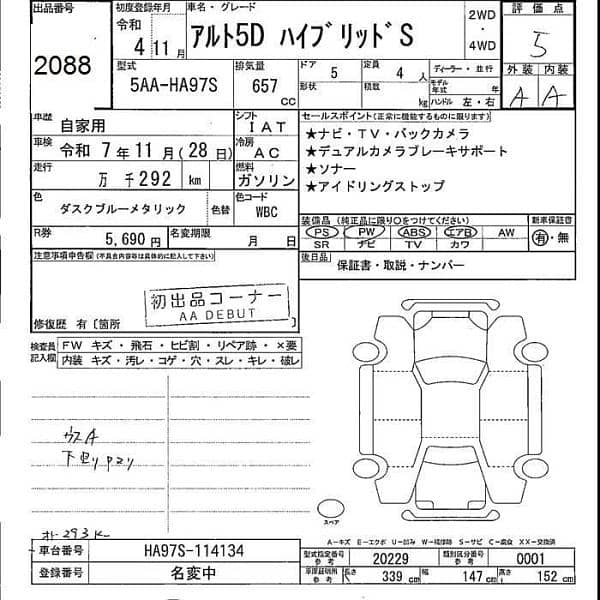 出品番号 2088
初度登録年月 令和 4 11月
車名・グレード アルト5D ハイブリッドS
2WD・4WD
評価点 5
外装 A 内装 A
型式 5AA-HA97S
排気量 657 CC
ドア 形状 5
定員 4 人
積載 kg
ディーラー・並行
モデル年式 年
ハンドル 左・右
車歴 自家用
シフト IAT
車検 令和 7年11月(28日)
冷房 AC
走行 万 千292 km
燃料 ガソリン
色 ダスクブルーメタリック 色替
色コード WBC
R券 5,690円
名変期限 月 日
セールスポイント(正常に機能するものに限ります)
★ナビ・TV・バックカメラ
★デュアルカメラブレーキサポート
★ソナー
★アイドリングストップ
装備品(純正品に限り○をつけてください)
PS PW ABS エアB AW
SR ナビ TV カワ
新車保証書 有・無
後日品 保証書・取説・ナンバー
注意事項申告欄(不具合内容等は具体的に記入して下さい)
初出品コーナー
AA DEBUT
修復歴 有〔箇所
検査員記入欄
FW キズ・飛石・ヒビ割・リペア跡・×要
内装 キズ・汚レ・コゲ・穴・スレ・キレ・破レ
ウスA
スペア
A-キズ E-エクボ U-凹み W-補修跡 S-サビ C-腐食 XX-交換済
車台番号 HA97S-114134
登録番号 名変中
型式指定番号 参考 20229
類別区分番号 参考 0001
車庫証明用 参考 長さ 339 cm 幅 147 cm 高さ 152 cm